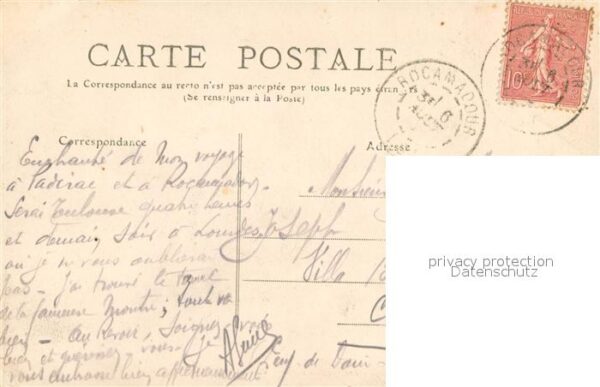 CARTE POSTALE
La Correspondance au recto n'est pas acceptée par tous les pays étrangers
(Se renseigner à la Poste)
ROCAMADOUR
31
6
AOUT
10
Correspondance
Adresse
Enchanté de mon voyage
à Padirac et à Rocamadour
Serai Toulouse quatre heures
et demain soir à Lourdes
où je ne vous oublierai
pas - J'ai trouvé le
de la fameuse montre; tout va
bien - Au Revoir, Soignez vous
bien et guérissez vous. Je
vous embrasse bien affectueusement
Monsieur
Joseph
Villa
privacy protection
Datenschutz